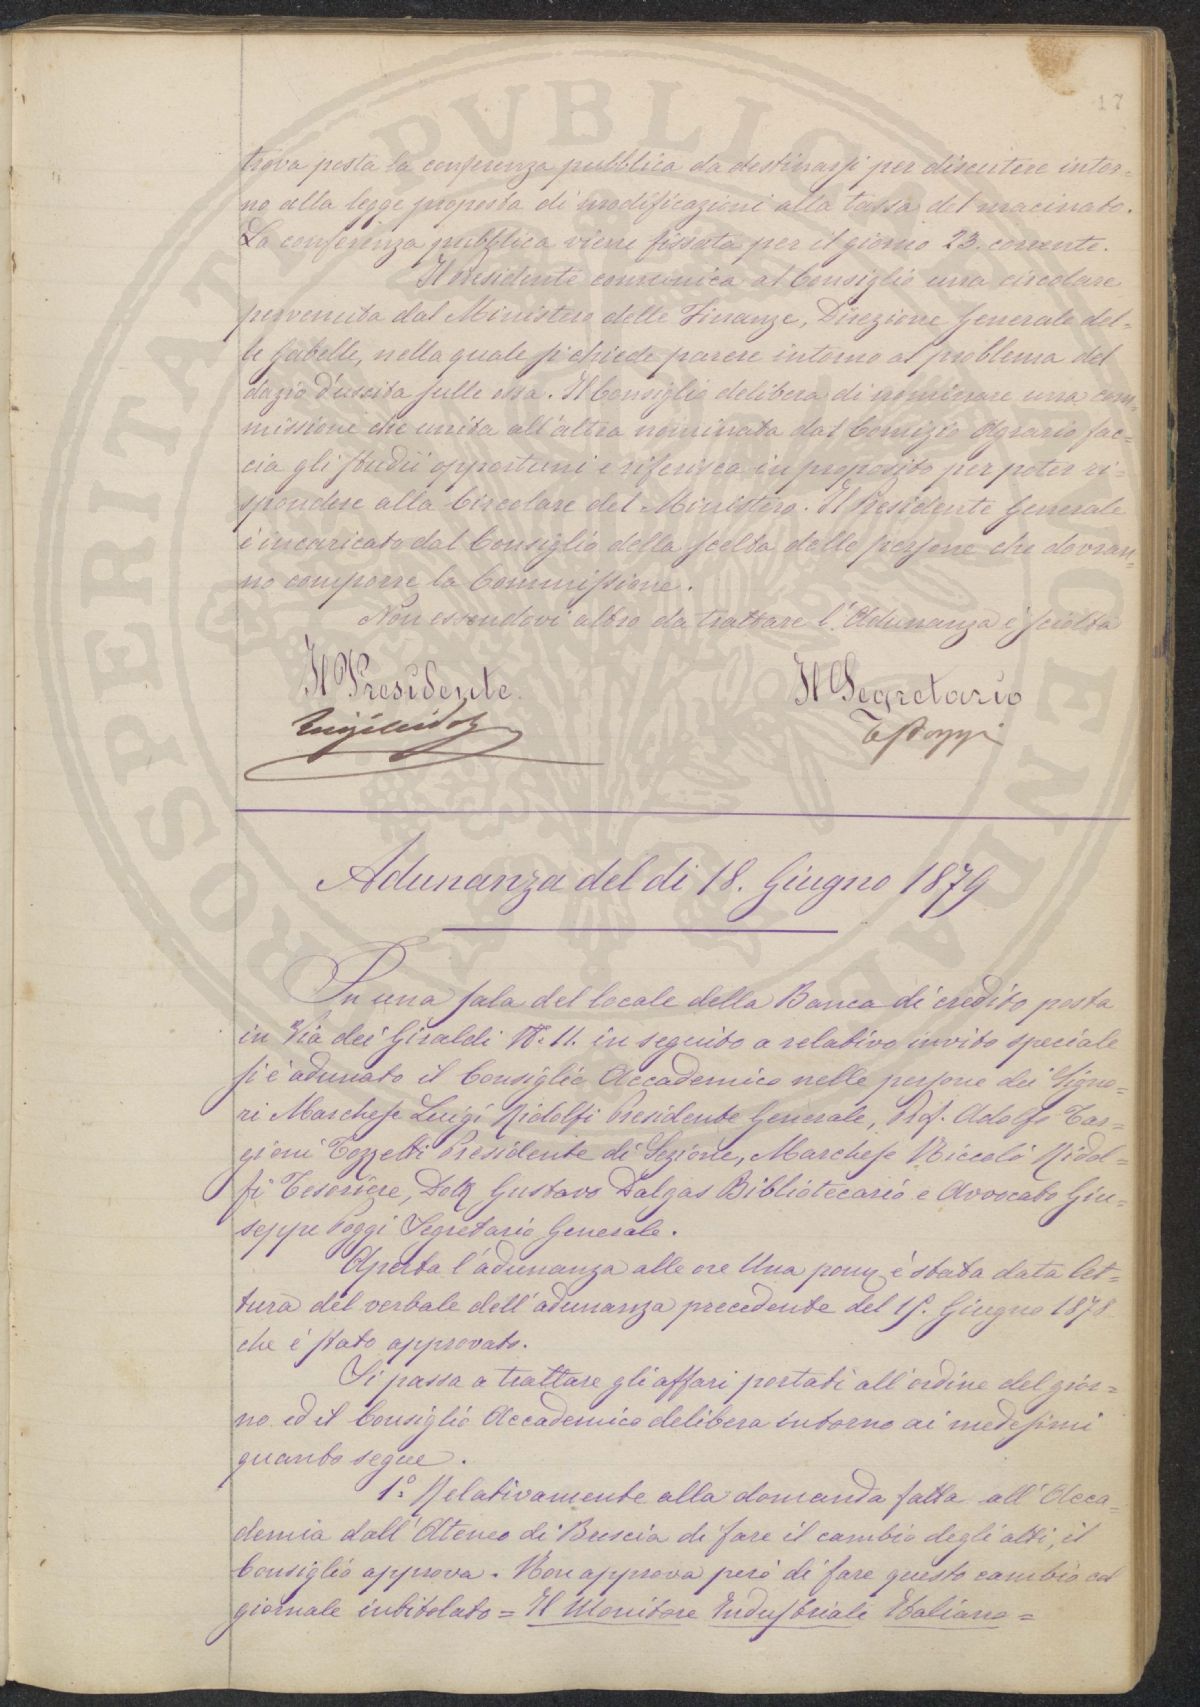 17
trova posta la conferenza pubblica da destinarsi per discutere intor=
no alla legge proposta di modificazioni alla tassa del macinato.
La conferenza pubblica viene fissata per il giorno 23. corrente.
Il Presidente comunica al Consiglio una circolare
pervenuta dal Ministero delle Finanze, Direzione Generale del=
le Gabelle, nella quale si chiede parere intorno al problema del
dazio d'uscita sulle ossa. Il Consiglio delibera di nominare una com=
missione che unita all'altra nominata dal Comizio Agrario fac=
cia gli studii opportuni e riferisca in proposito per poter ri=
spondere alla Circolare del Ministero. Il Presidente Generale
è incaricato dal Consiglio della scelta delle persone che dovran=
no comporre la Commissione.
Non essendovi altro da trattare l'Adunanza è sciolta
Il Presidente Il Segretario
Luigi Ridolfi G Poggi
Adunanza del di 18. Giugno 1879
In una sala del locale della Banca di credito posta
in Via dei Giraldi N.° 11. in seguito a relativo invito speciale
si è adunato il Consiglio Accademico nelle persone dei Signo=
ri Marchese Luigi Ridolfi Presidente Generale, Prof. Adolfo Tar=
gioni Tozzetti Presidente di Sezione, Marchese Niccolò Ridol=
fi Tesoriere, Dott Gustavo Dalgas Bibliotecario e Avvocato Giu=
seppe Poggi Segretario Generale.
Aperta l'adunanza alle ore Una pom è stata data let=
tura del verbale dell'adunanza precedente del Giugno 1878
che è stato approvato.
Si passa a trattare gli affari portati all'ordine del gior=
no ed il Consiglio Accademico delibera intorno ai medesimi
quanto segue.
1.° Relativamente alla domanda fatta all'Acca=
demia dall'Ateneo di Brescia di fare il cambio degli atti, il
Consiglio approva. Non approva però di fare questo cambio col
giornale intitolato = Il Monitore Industriale Italiano =
PROSPERITATI PVBLICAE AVGENDAE